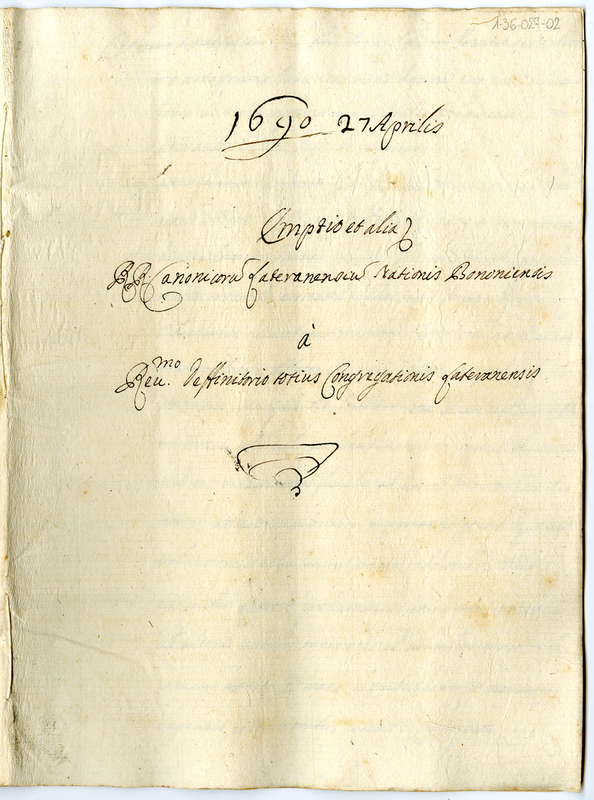 1-36-027-02
1690 27 Aprilis
Emptio et alia
RR Canonicorū Lateranensiū Nationis Bononiensis
à
Reu.mo Deffinitorio totius Congregationis Lateranensis